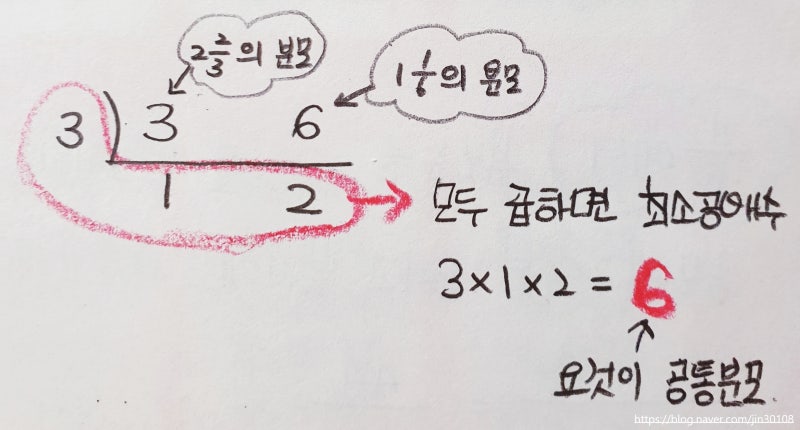 2 2/3 의 분모
1 1/6 의 분모
3 ) 3 6
1 2
모두 곱하면 최소공배수
3×1×2 = 6
요것이 공통분모.
https://blog.naver.com/jin30108